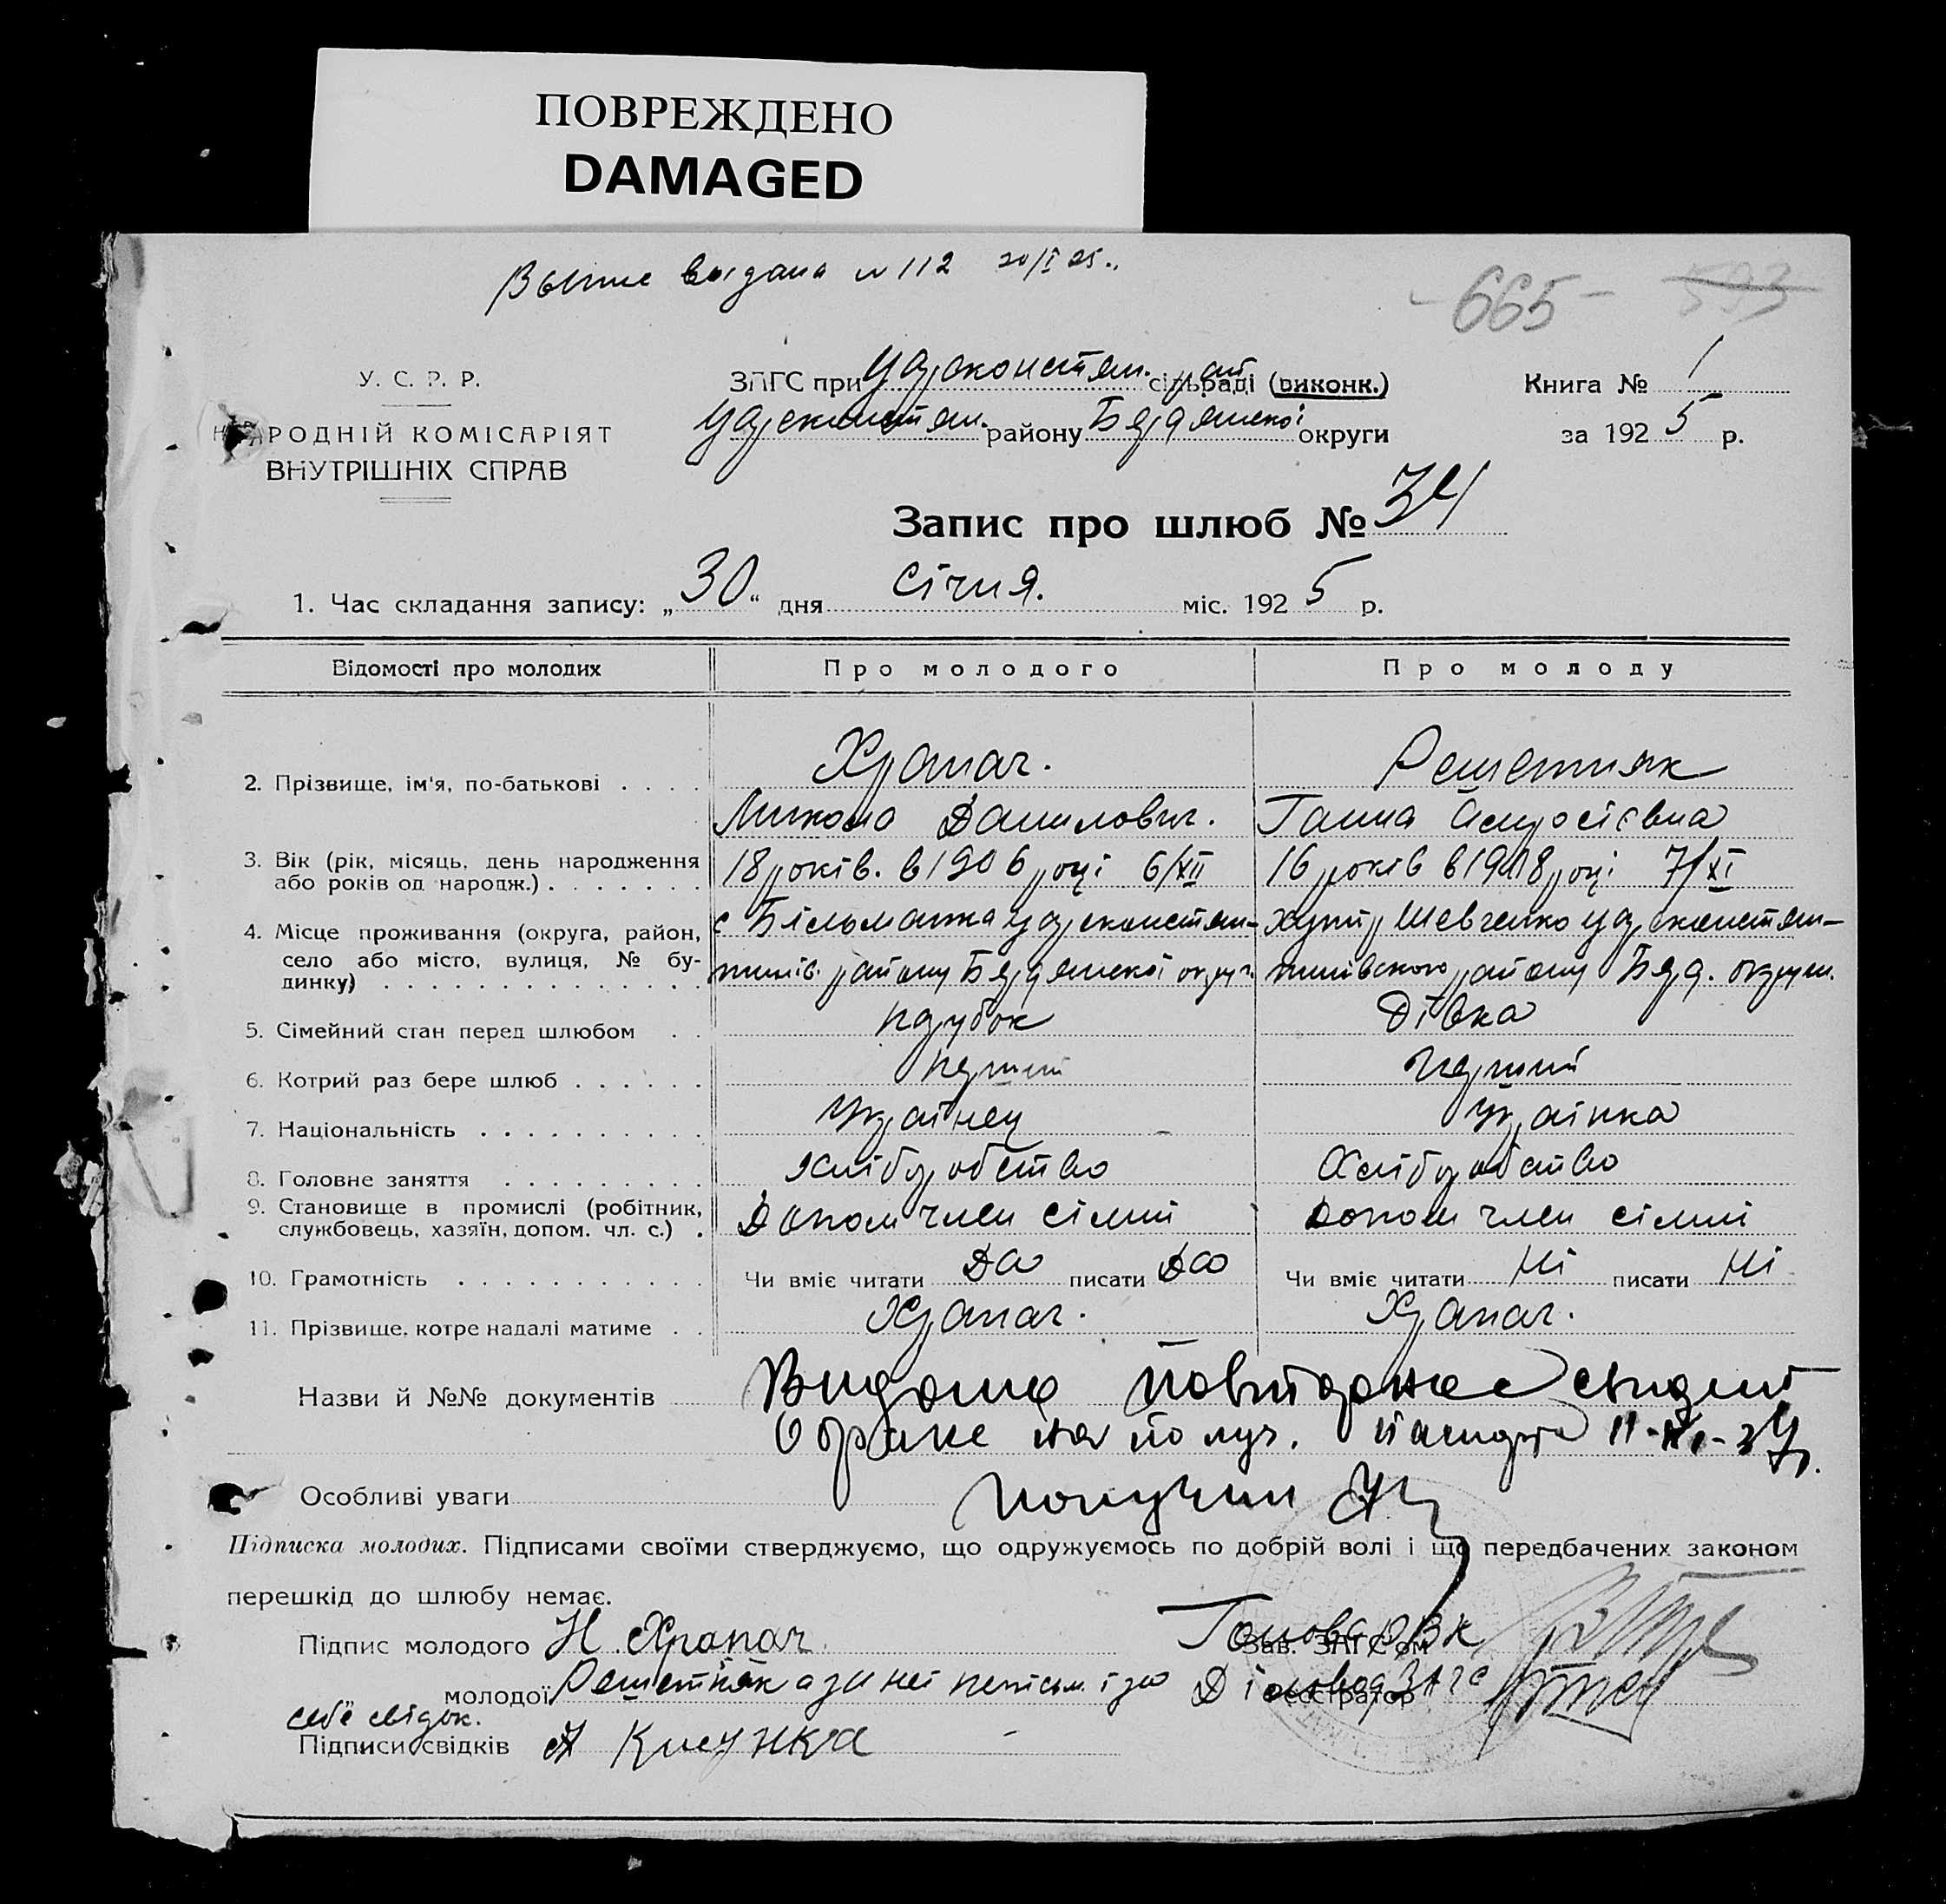 ПОВРЕЖДЕНО
DAMAGED
выдана № 112 20/I 25.
- 665 - 593
У. С. Р. Р.
НАРОДНІЙ КОМІСАРІЯТ
ВНУТРІШНІХ СПРАВ
ЗАГС при Цареконстян. рай сільраді (виконк.)
Цареконстян. району Бердянської округи
Книга № 1
за 1925 р.
Запис про шлюб № 34
1. Час складання запису: „30“ дня Січня. міс. 1925 р.
Відомості про молодих Про молодого Про молоду
2. Прізвище, ім'я, по-батькові . . . . Храпач. Решетняк
Микола Данилович. Ганна
3. Вік (рік, місяць, день народження або років од народж.) . . . . . . . 18 років. в 1906 році 6/XII 16 років в 1908 році 7/XI
4. Місце проживання (округа, район, село або місто, вулиця, № будинку) . . . с Більманка Цареконстян- хутір Шевченко Цареконстян-
тинів. району Бердянської округ. тинівського району Берд. округи.
5. Сімейний стан перед шлюбом . . парубок Дівка
6. Котрий раз бере шлюб . . . . . . перший перший
7. Національність . . . . . . . . . . Українец Українка
8. Головне заняття . . . . . . . . . хліборобство Хліборобство
9. Становище в промислі (робітник, службовець, хазяїн, допом. чл. с.) . Допом член сімиі Допом член сімиі
10. Грамотність . . . . . . . . . . . Чи вміє читати Да писати Да Чи вміє читати Ні писати Ні
11. Прізвище, котре надалі матиме . . Храпач. Храпач.
Назви й №№ документів Видано повторное свидет
о браке на получ. паспорта
Особливі уваги получил
Підписка молодих. Підписами своїми стверджуємо, що одружуємось по добрій волі і що передбачених законом
перешкід до шлюбу немає.
Підпис молодого Н. Храпач Голова РВК
Зав. ЗАГС'ом
молодої Решетняк а за неі неписьм. і за Діловод ЗАГС
Реєстратор
себе свідок.
Підписи свідків А